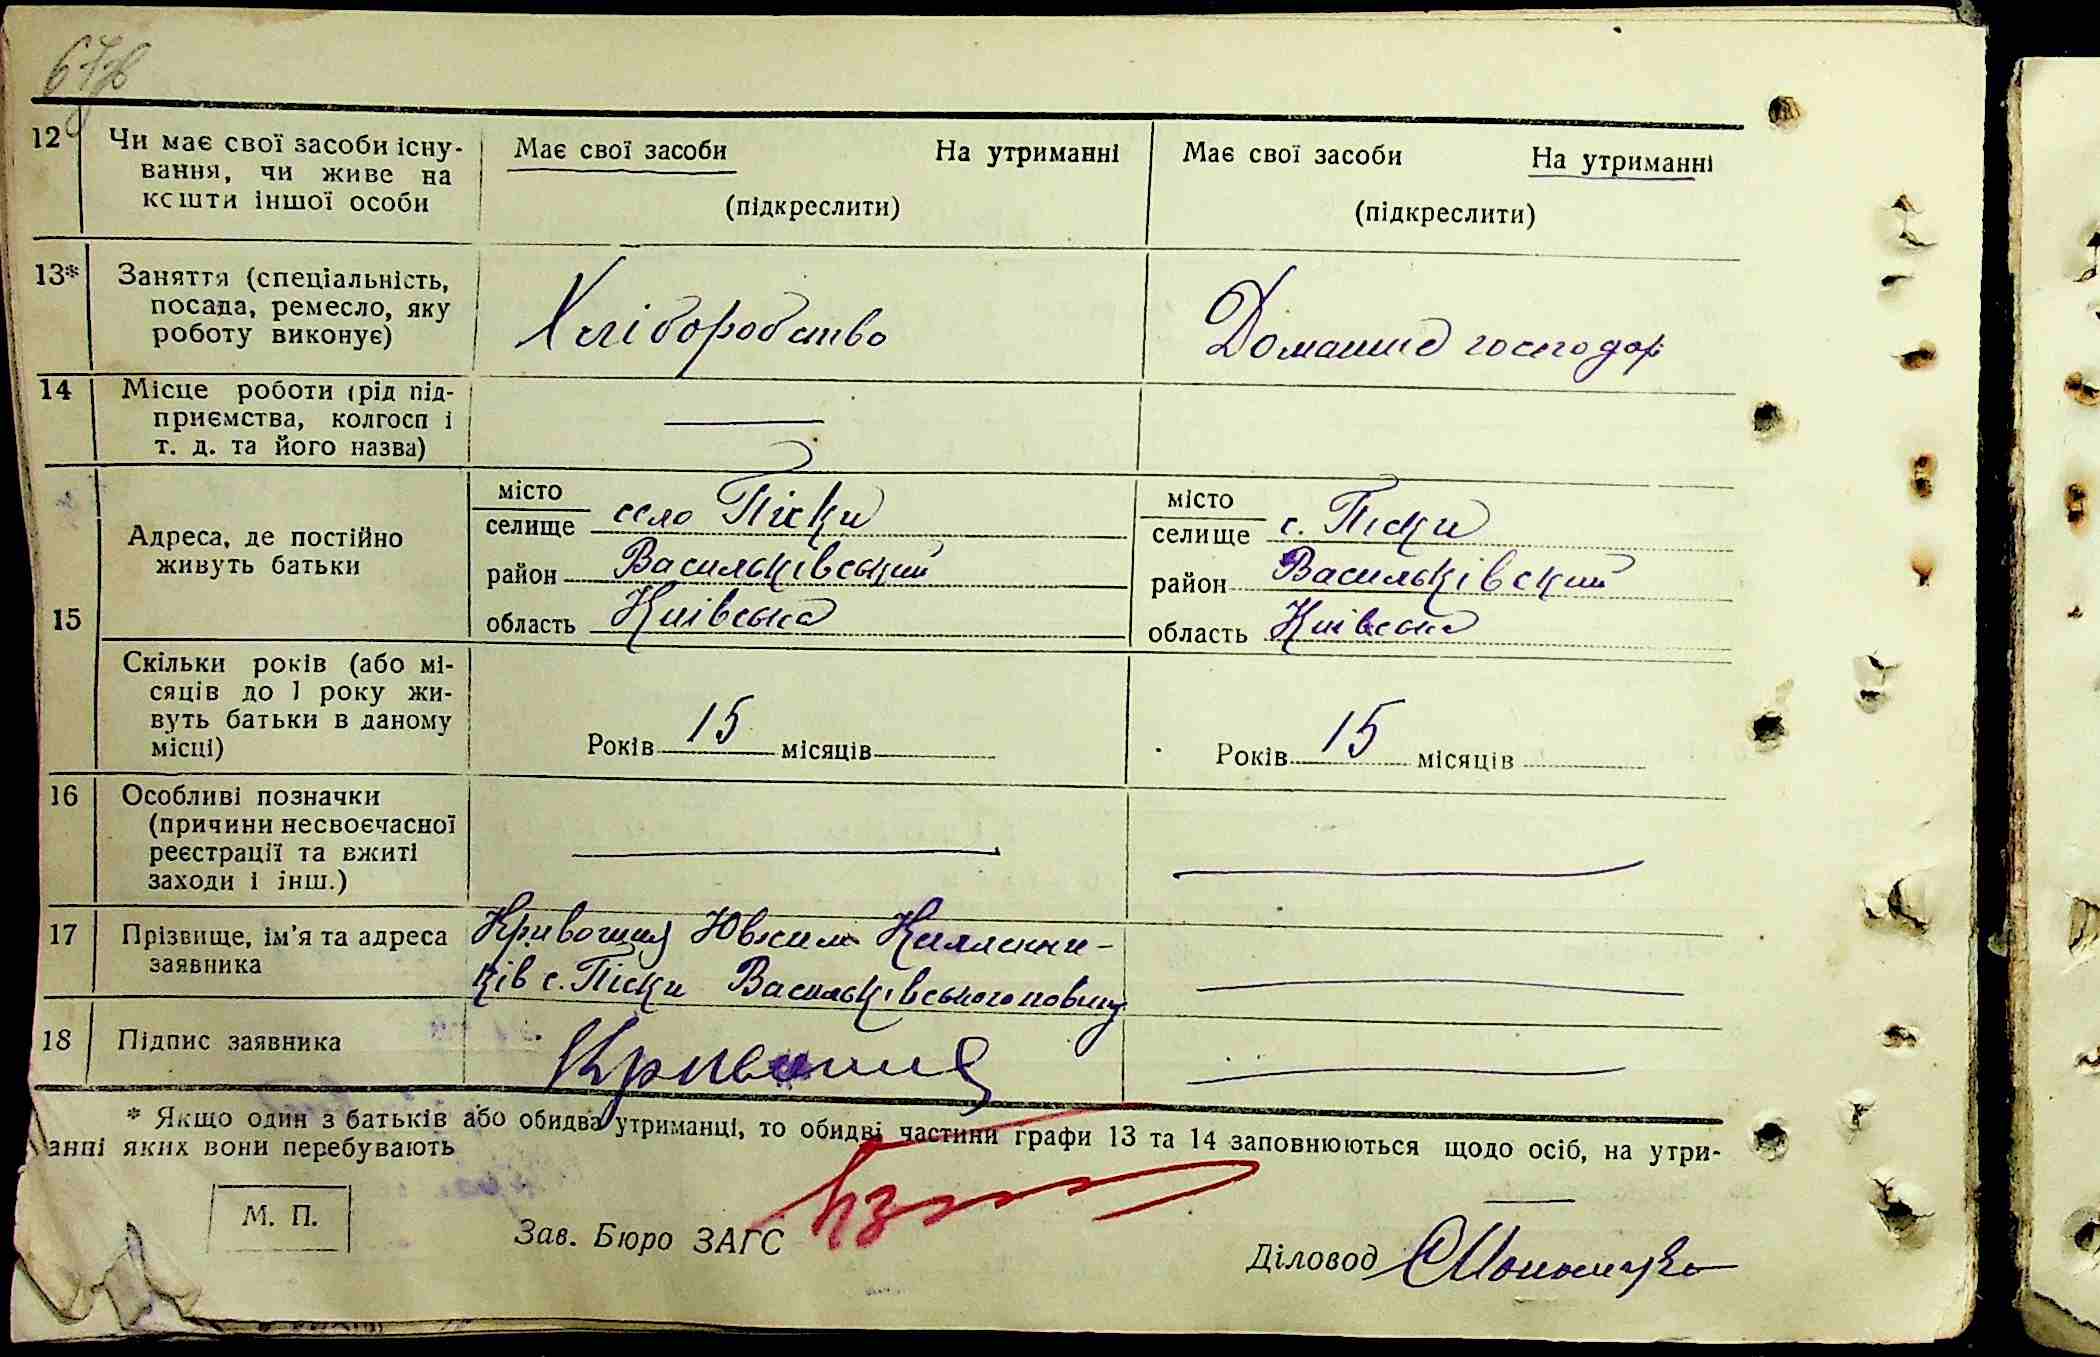 67
12 Чи має свої засоби існу-
вання, чи живе на
кошти іншої особи
Має свої засоби На утриманні
(підкреслити)
Має свої засоби На утриманні
(підкреслити)
13* Заняття (спеціальність,
посада, ремесло, яку
роботу виконує)
Хліборобство
Домашнє господар
14 Місце роботи (рід під-
приємства, колгосп і
т. д. та його назва)
15 Адреса, де постійно
живуть батьки
місто
селище село Піски
район Васильківський
область Київська
місто
селище с. Піски
район Васильківский
область Київська
Скільки років (або мі-
сяців до 1 року жи-
вуть батьки в даному
місці)
Років 15 місяців
Років 15 місяців
16 Особливі позначки
(причини несвоєчасної
реєстрації та вжиті
заходи і інш.)
17 Прізвище, ім'я та адреса
заявника
Кривошия
ків с. Піски Васильківського повіту
18 Підпис заявника
Кривошия
* Якщо один з батьків або обидва утриманці, то обидві частини графи 13 та 14 заповнюються щодо осіб, на утри-
анні яких вони перебувають
М. П.
Зав. Бюро ЗАГС
Діловод